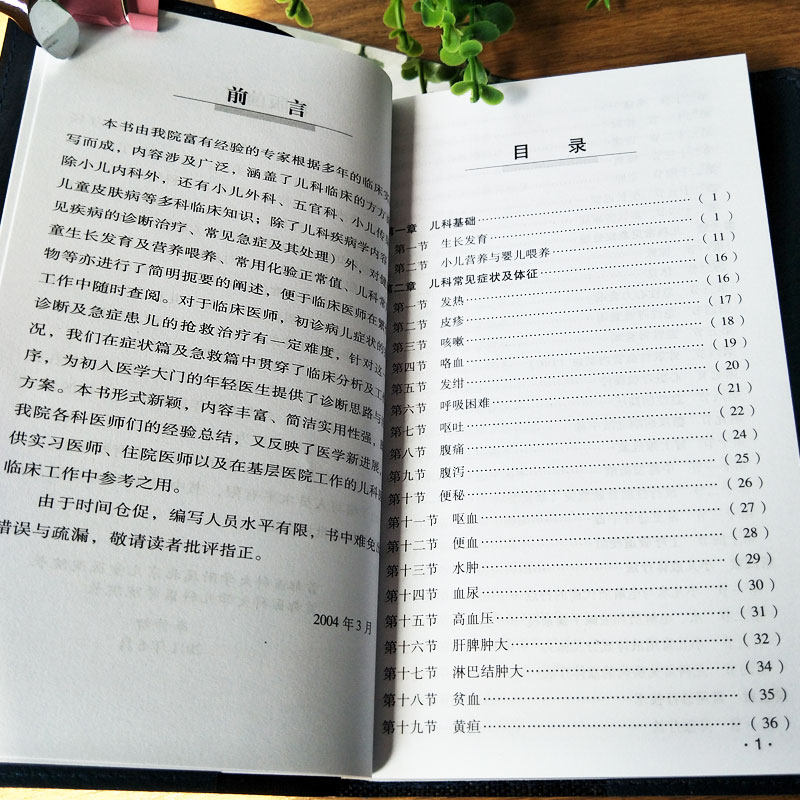 前 言
本书由我院富有经验的专家根据多年的临床
写而成，内容涉及广泛，涵盖了儿科临床的方方
除小儿内科外，还有小儿外科、五官科、小儿传
儿童皮肤病等多科临床知识；除了儿科疾病学内容
见疾病的诊断治疗、常见急症及其处理）外，对
童生长发育及营养喂养、常用化验正常值、儿科常
物等亦进行了简明扼要的阐述，便于临床医师在
工作中随时查阅。对于临床医师，初诊病儿症状的
诊断及急症患儿的抢救治疗有一定难度，针对这
况，我们在症状篇及急救篇中贯穿了临床分析及工
序，为初入医学大门的年轻医生提供了诊断思路与
方案。本书形式新颖，内容丰富、简洁实用性强，
我院各科医师们的经验总结，又反映了医学新进展，
供实习医师、住院医师以及在基层医院工作的儿科
临床工作中参考之用。
由于时间仓促，编写人员水平有限，书中难免
错误与疏漏，敬请读者批评指正。
2004 年 3 月
目 录
第一章 儿科基础 （ 1 ）
第一节 生长发育 （ 1 ）
第二节 小儿营养与婴儿喂养 （ 11 ）
第二章 儿科常见症状及体征 （ 16 ）
第一节 发热 （ 16 ）
第二节 皮疹 （ 17 ）
第三节 咳嗽 （ 18 ）
第四节 咯血 （ 19 ）
第五节 发绀 （ 20 ）
第六节 呼吸困难 （ 21 ）
第七节 呕吐 （ 22 ）
第八节 腹痛 （ 24 ）
第九节 腹泻 （ 25 ）
第十节 便秘 （ 26 ）
第十一节 呕血 （ 27 ）
第十二节 便血 （ 28 ）
第十三节 水肿 （ 29 ）
第十四节 血尿 （ 30 ）
第十五节 高血压 （ 31 ）
第十六节 肝脾肿大 （ 32 ）
第十七节 淋巴结肿大 （ 34 ）
第十八节 贫血 （ 35 ）
第十九节 黄疸 （ 36 ）
· 1 ·